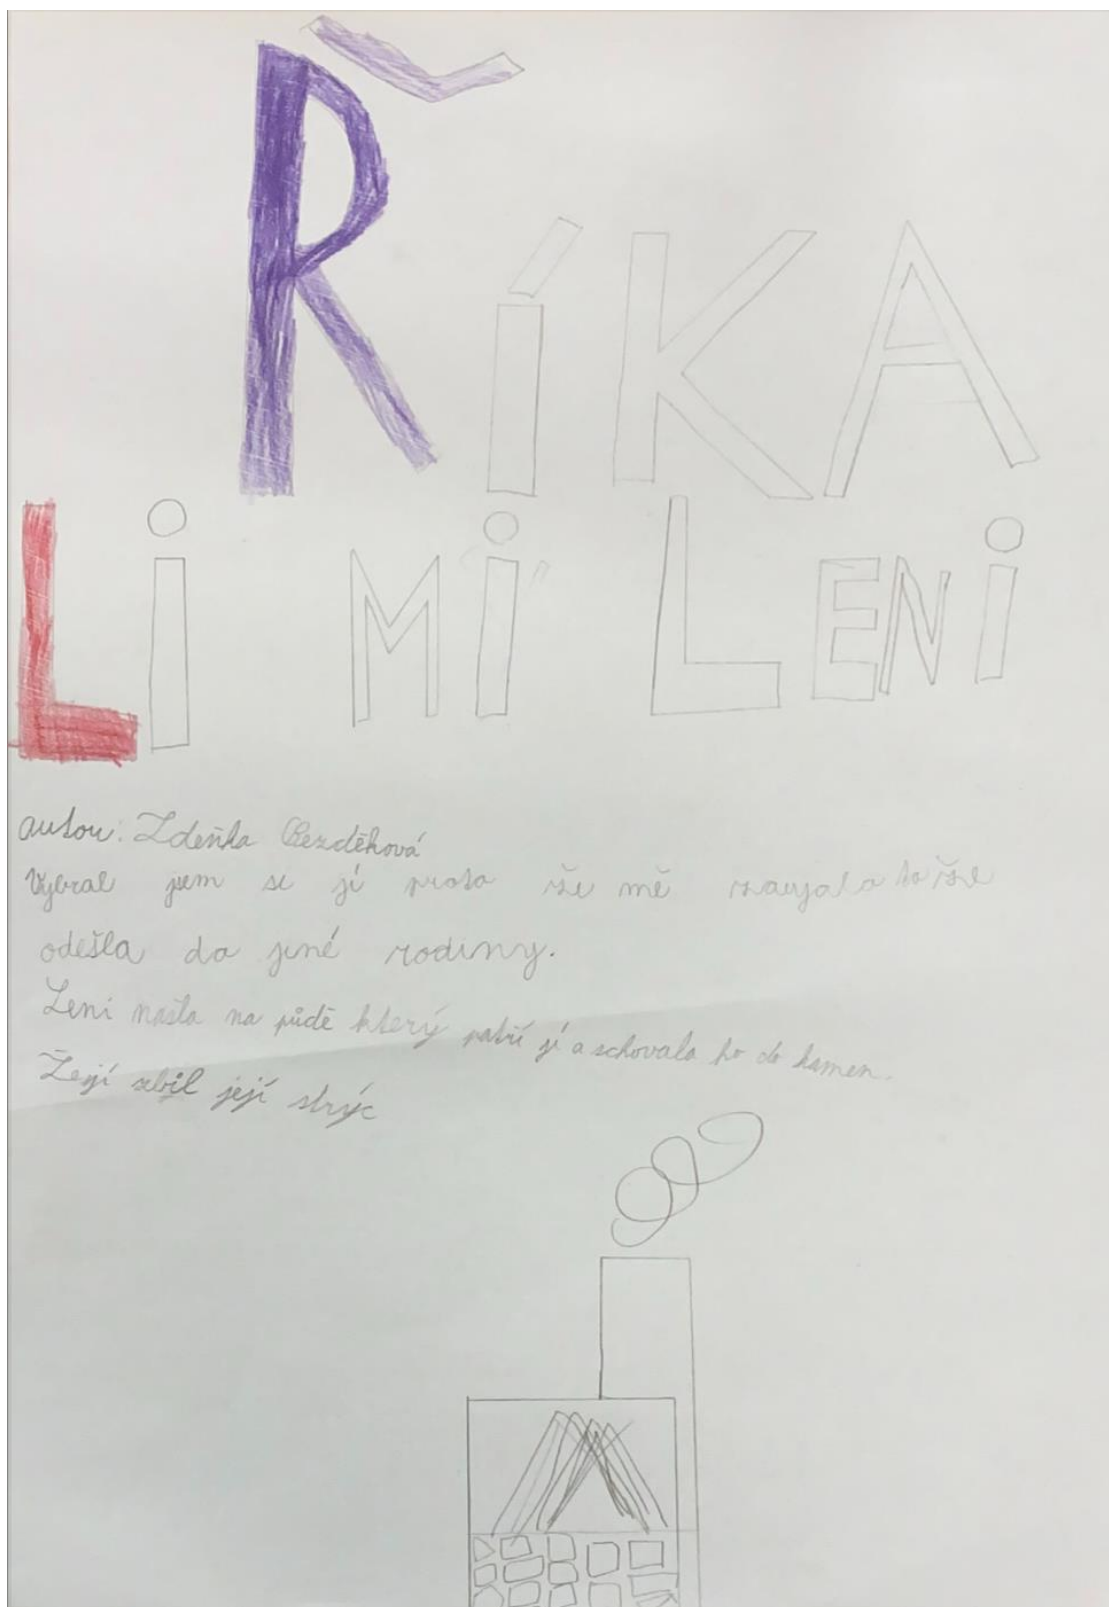 ŘÍKA
Li Mi LENi
autor: Zdeňka Bezděková
Vybral jsem si jí proto že mě zaujalo to že
odešla do jiné rodiny.
Leni našla na půdě který patří jí a schovala ho do kamen.
Žejí zbil její strýc